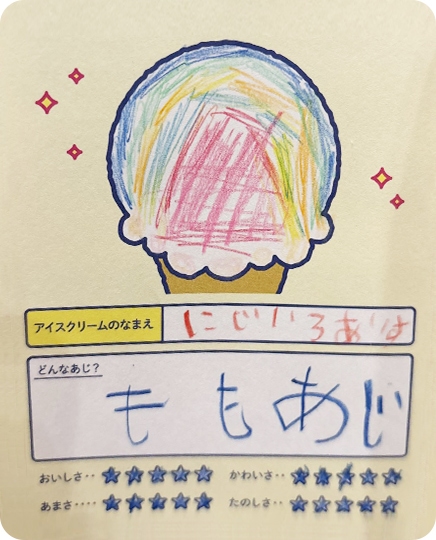 アイスクリームのなまえ にじいろあじは
どんなあじ？
ももあじ
おいしさ‥ ★★★★★ かわいさ‥ ★★★★★
あまさ‥‥ ★★★★★ たのしさ‥ ★★★★★